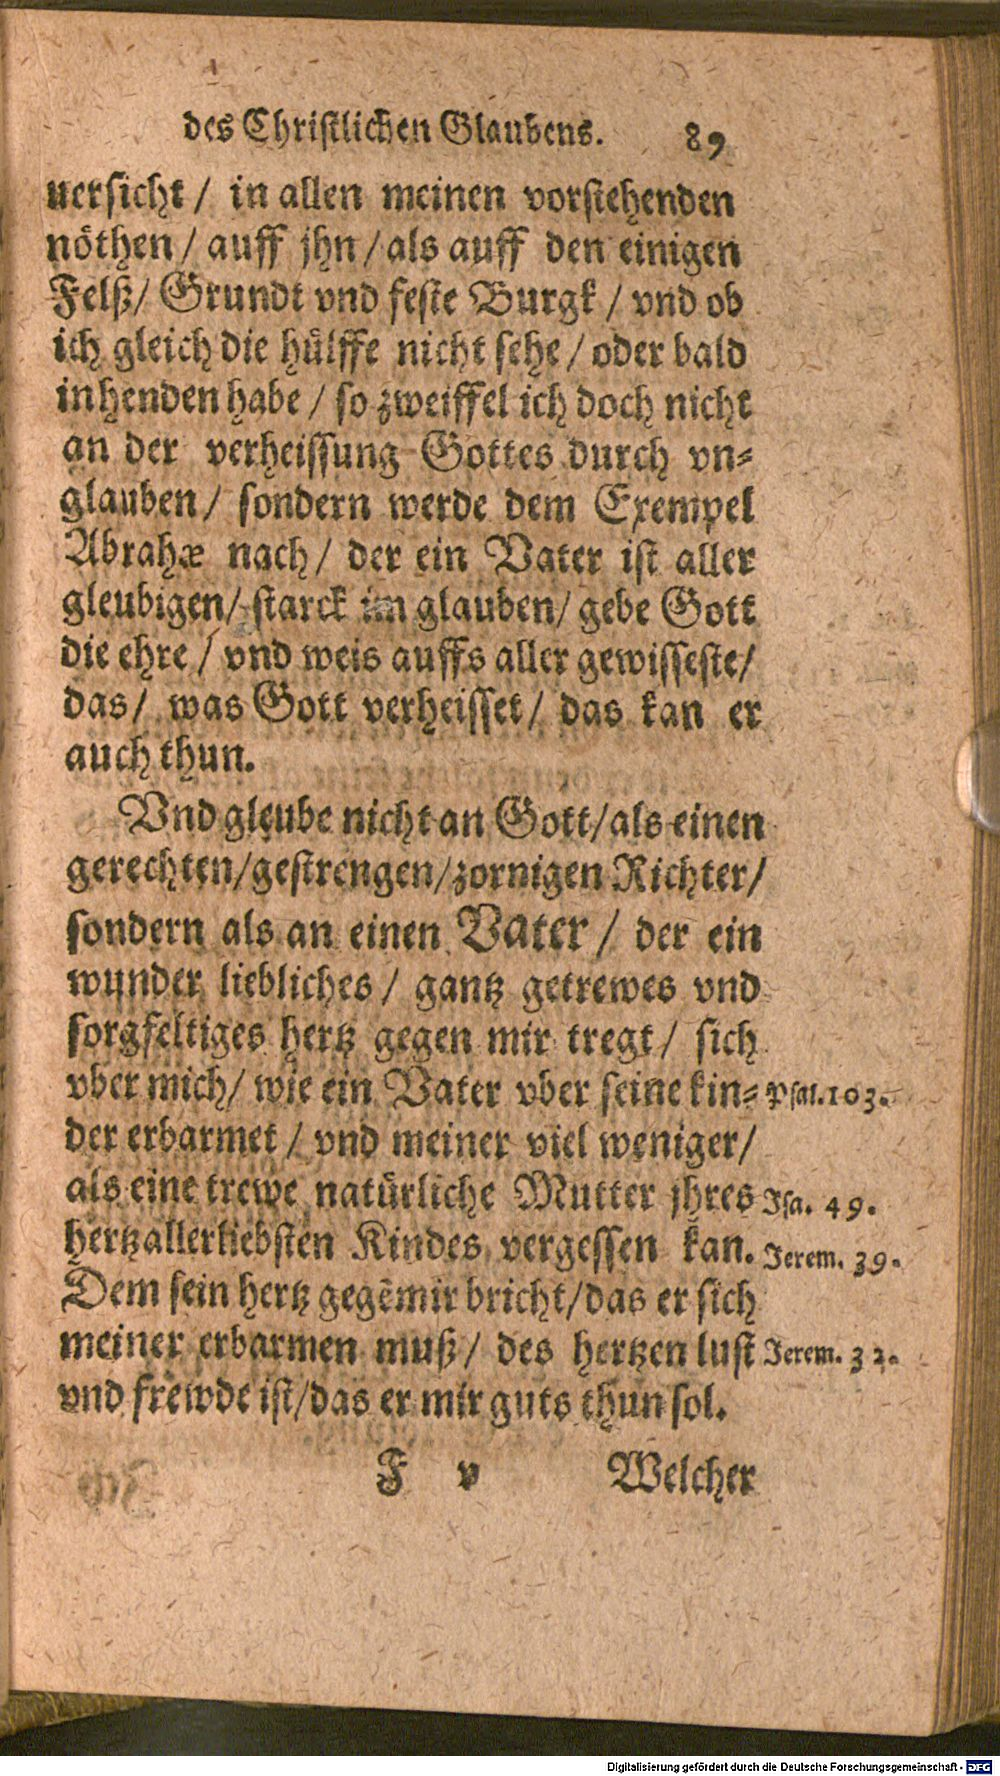 des Christlichen Glaubens. 89
uersicht / in allen meinen vorstehenden
nöthen / auff jhn / als auff den einigen
Felß / Grundt vnd feste Burgk / vnd ob
ich gleich die hülffe nicht sehe / oder bald
in henden habe / so zweiffel ich doch nicht
an der verheissung Gottes durch vn⸗
glauben / sondern werde dem Exempel
Abrahæ nach / der ein Vater ist aller
gleubigen / starck im glauben / gebe Gott
die ehre / vnd weis auffs aller gewisseste /
das / was Gott verheisset / das kan er
auch thun.
Vnd gleube nicht an Gott / als einen
gerechten / gestrengen / zornigen Richter /
sondern als an einen Vater / der ein
wunder liebliches / gantz getrewes vnd
sorgfeltiges hertz gegen mir tregt / sich
vber mich / wie ein Vater vber seine kin⸗ Psal. 103.
der erbarmet / vnd meiner viel weniger /
als eine trewe natürliche Mutter jhres Isa. 49.
hertzallerliebsten Kindes vergessen kan. Jerem. 39.
Dem sein hertz gegē mir bricht / das er sich
meiner erbarmen muß / des hertzen lust Jerem. 32.
vnd frewde ist / das er mir guts thun sol.
F v Welcher
Digitalisierung gefördert durch die Deutsche Forschungsgemeinschaft - DFG